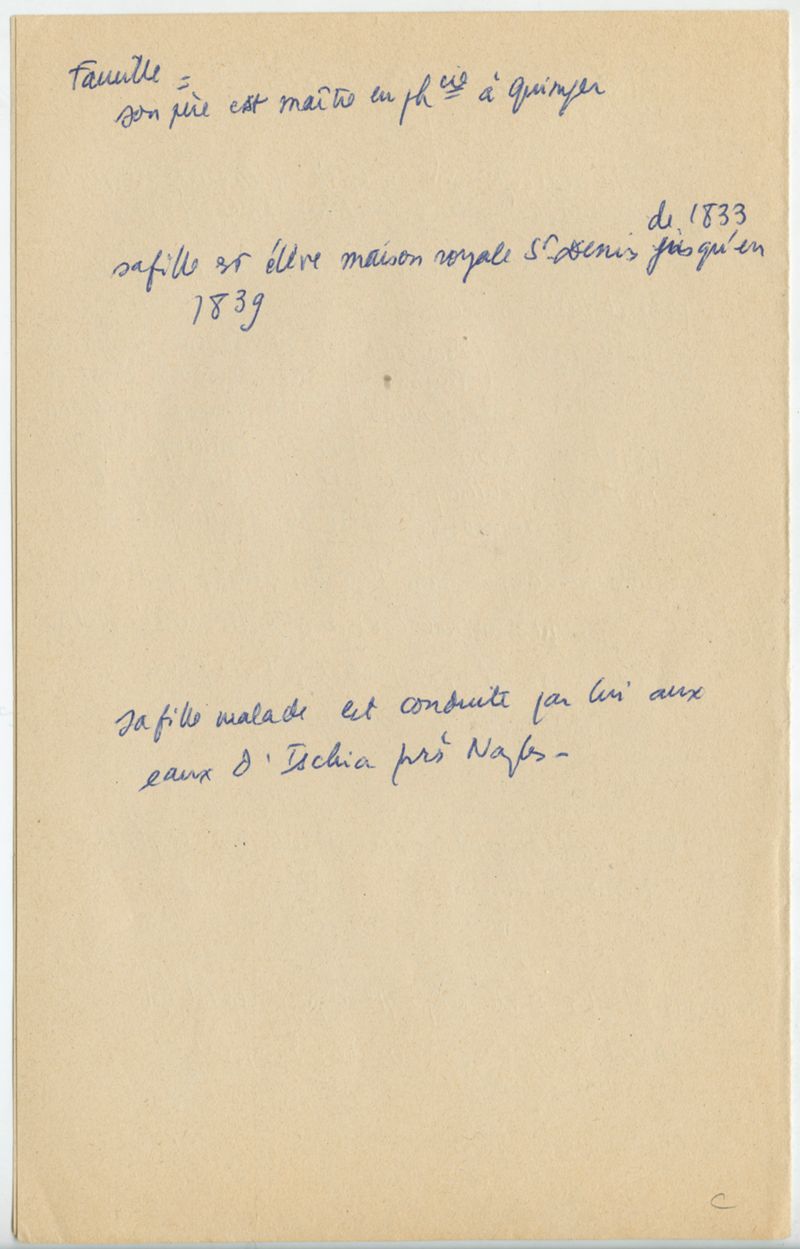 Famille =
son père est maître en ph cie à Quimper
de 1833
sa fille est élève maison royale St Denis jusqu'en
1839
sa fille malade est conduite par lui aux
eaux d'Ischia près Naples -
C